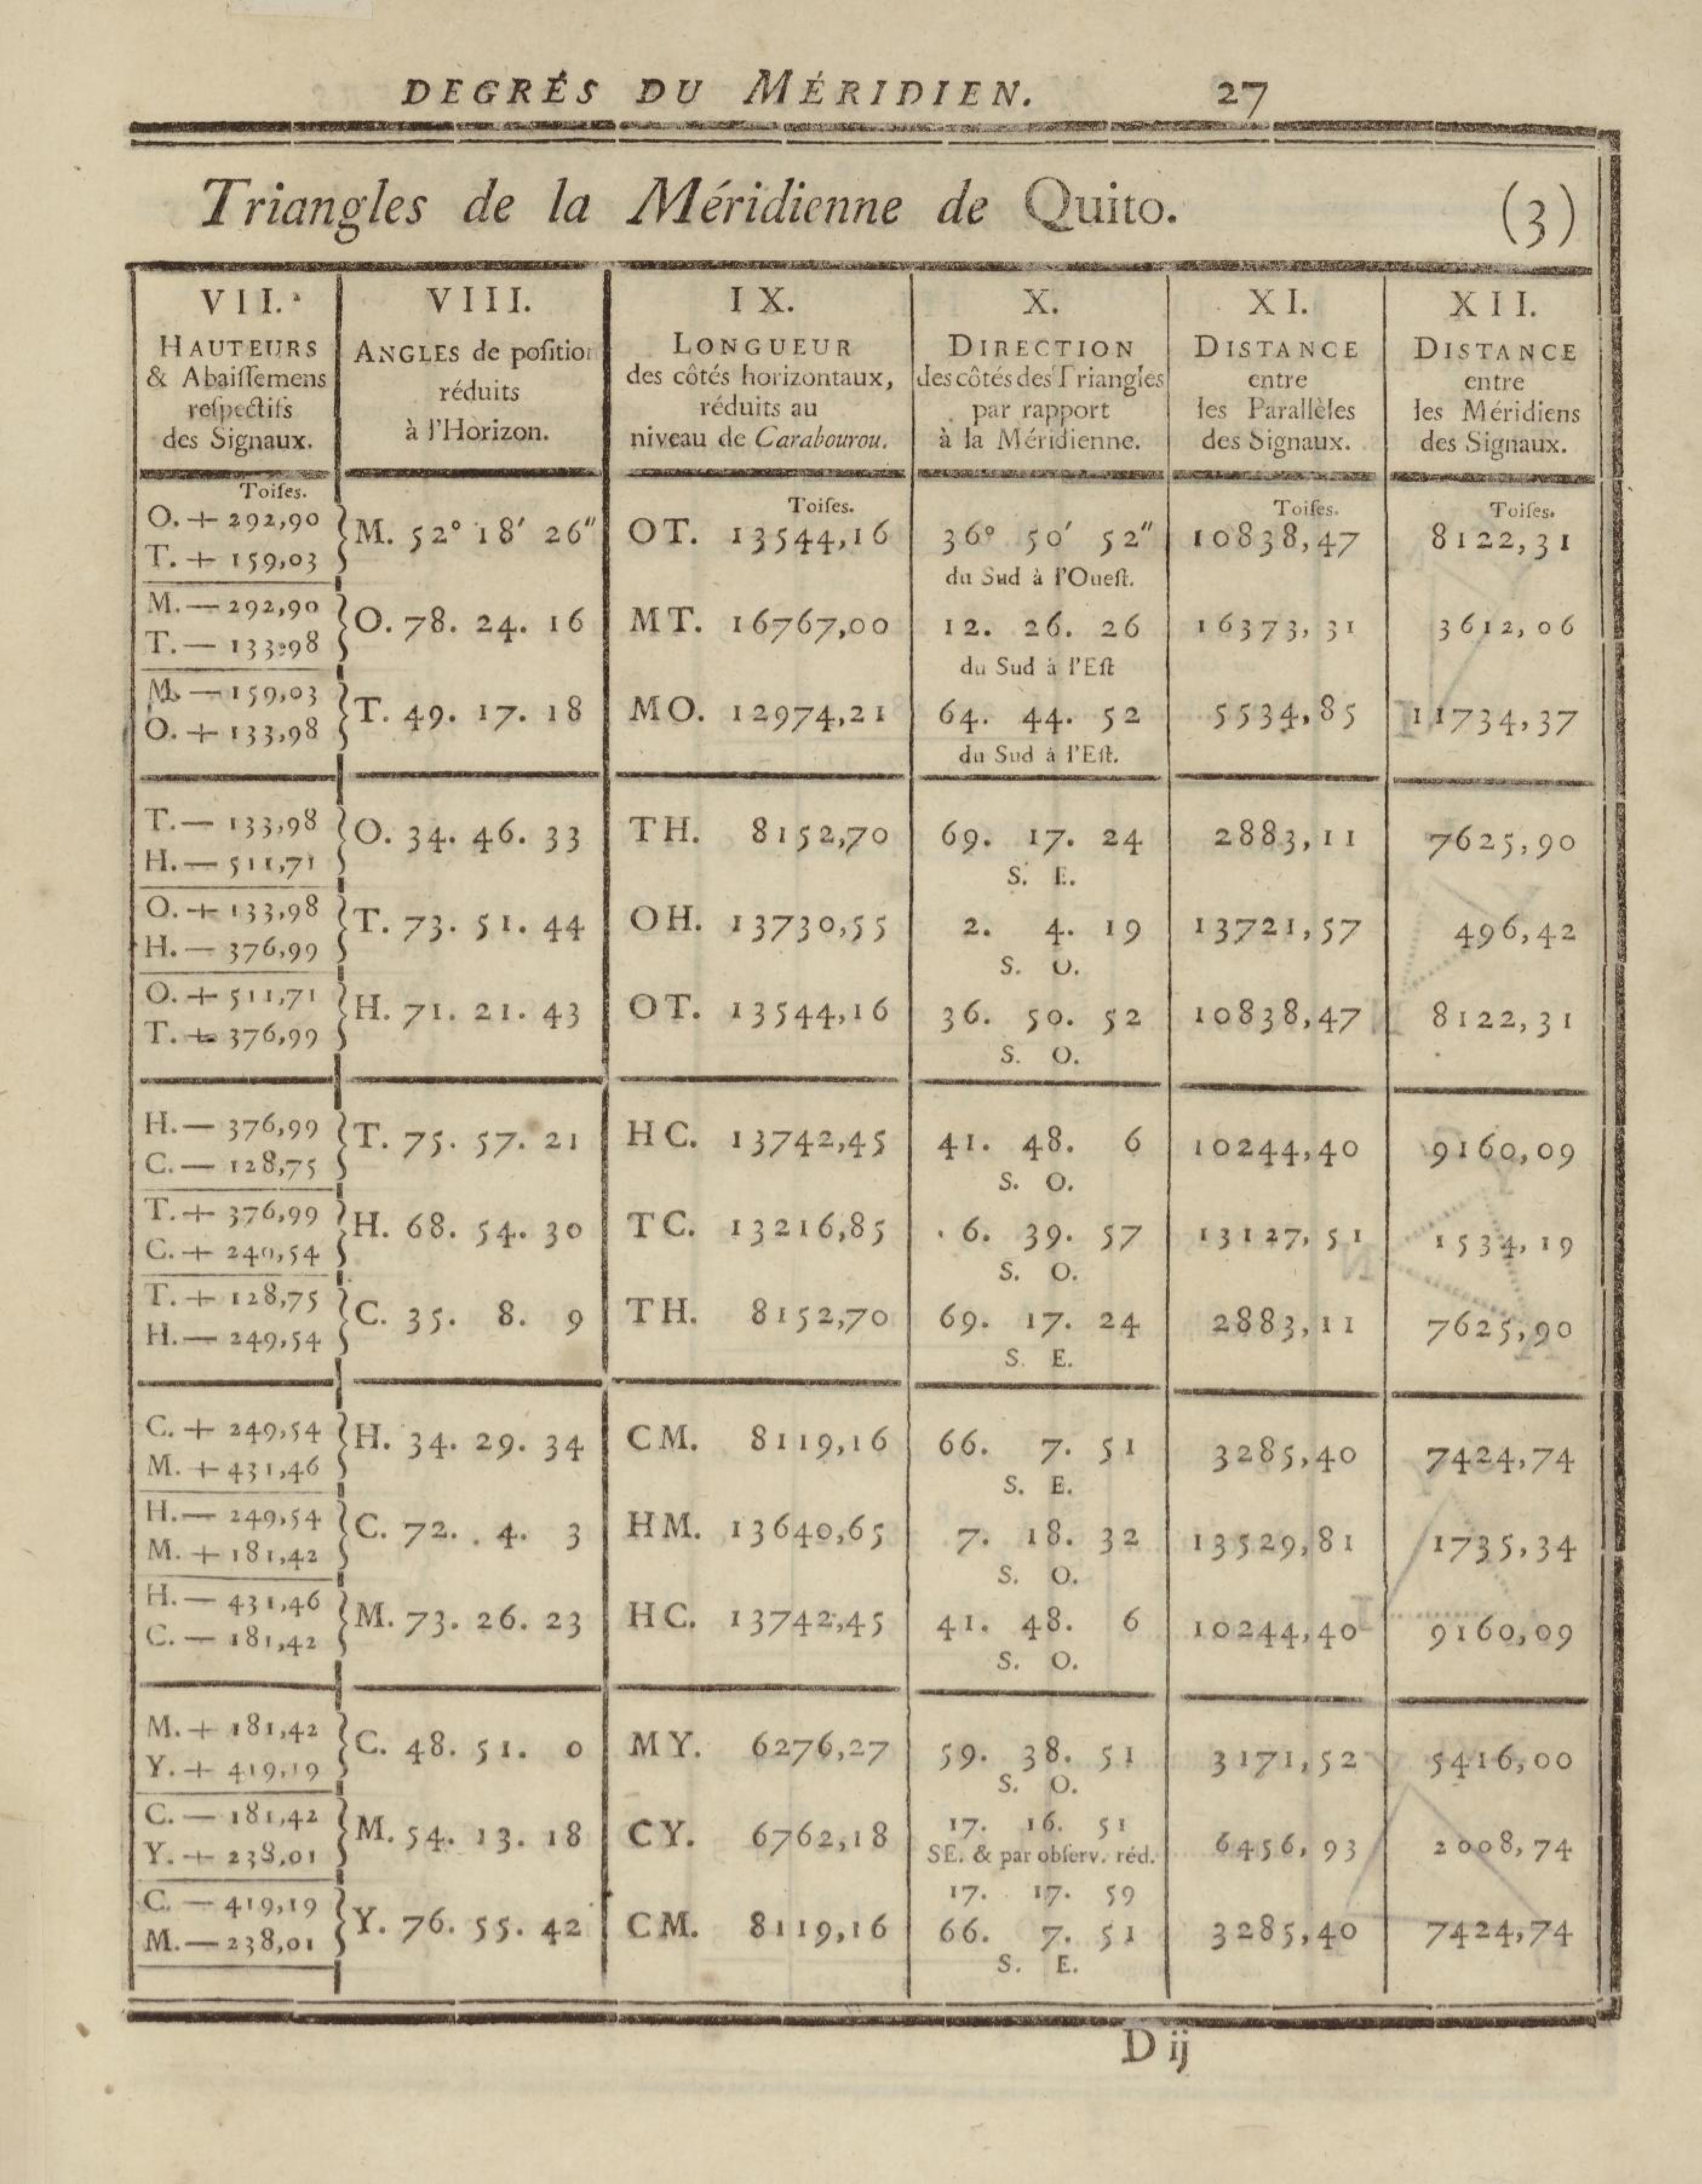 DEGRÉS DU MÉRIDIEN. 27
Triangles de la Méridienne de Quito. (3)
VII. VIII. IX. X. XI. XII.
HAUTEURS & Abaiſſemens reſpectifs des Signaux.
ANGLES de poſition réduits à l'Horizon.
LONGUEUR des côtés horizontaux, réduits au niveau de Carabourou.
DIRECTION des côtés des Triangles par rapport à la Méridienne.
DISTANCE entre les Parallèles des Signaux.
DISTANCE entre les Méridiens des Signaux.
Toiſes. Toiſes. Toiſes. Toiſes.
O. + 292,90
T. + 159,03
M. 52° 18′ 26″ OT. 13544,16 36° 50′ 52″ 10838,47 8122,31
du Sud à l'Oueſt.
M. — 292,90
T. — 133,98
O. 78. 24. 16 MT. 16767,00 12. 26. 26 16373,31 3612,06
du Sud à l'Eſt
M. — 159,03
O. + 133,98
T. 49. 17. 18 MO. 12974,21 64. 44. 52 5534,85 11734,37
du Sud à l'Eſt.
T. — 133,98
H. — 511,71
O. 34. 46. 33 TH. 8152,70 69. 17. 24 2883,11 7625,90
S. E.
O. + 133,98
H. — 376,99
T. 73. 51. 44 OH. 13730,55 2. 4. 19 13721,57 496,42
S. O.
O. + 511,71
T. + 376,99
H. 71. 21. 43 OT. 13544,16 36. 50. 52 10838,47 8122,31
S. O.
H. — 376,99
C. — 128,75
T. 75. 57. 21 HC. 13742,45 41. 48. 6 10244,40 9160,09
S. O.
T. + 376,99
C. + 240,54
H. 68. 54. 30 TC. 13216,85 6. 39. 57 13127,51 1534,19
S. O.
T. + 128,75
H. — 249,54
C. 35. 8. 9 TH. 8152,70 69. 17. 24 2883,11 7625,90
S. E.
C. + 249,54
M. + 431,46
H. 34. 29. 34 CM. 8119,16 66. 7. 51 3285,40 7424,74
S. E.
H. — 249,54
M. + 181,42
C. 72. 4. 3 HM. 13640,65 7. 18. 32 13529,81 1735,34
S. O.
H. — 431,46
C. — 181,42
M. 73. 26. 23 HC. 13742,45 41. 48. 6 10244,40 9160,09
S. O.
M. + 181,42
Y. + 419,19
C. 48. 51. 0 MY. 6276,27 59. 38. 51 3171,52 5416,00
S. O.
C. — 181,42
Y. + 238,01
M. 54. 13. 18 CY. 6762,18 17. 16. 51 6456,93 2008,74
SE. & par obſerv. réd.
17. 17. 59
C. — 419,19
M. — 238,01
Y. 76. 55. 42 CM. 8119,16 66. 7. 51 3285,40 7424,74
S. E.
D ij